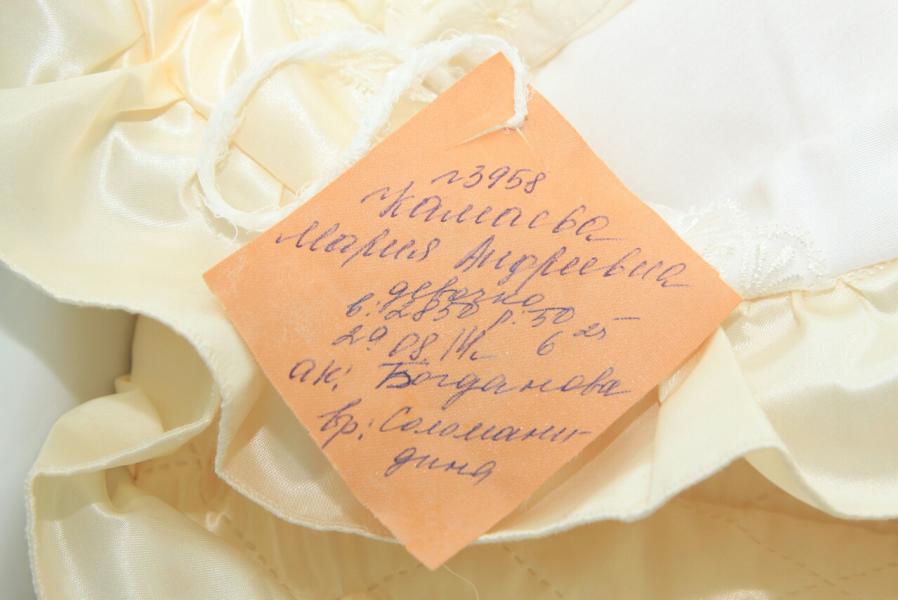 №3958
Камаева
Мария Андреевна
девочка
в: 2850 р. 50
29 08. 14г. 6 25
ак: Богданова
вр: Соломани-
дина